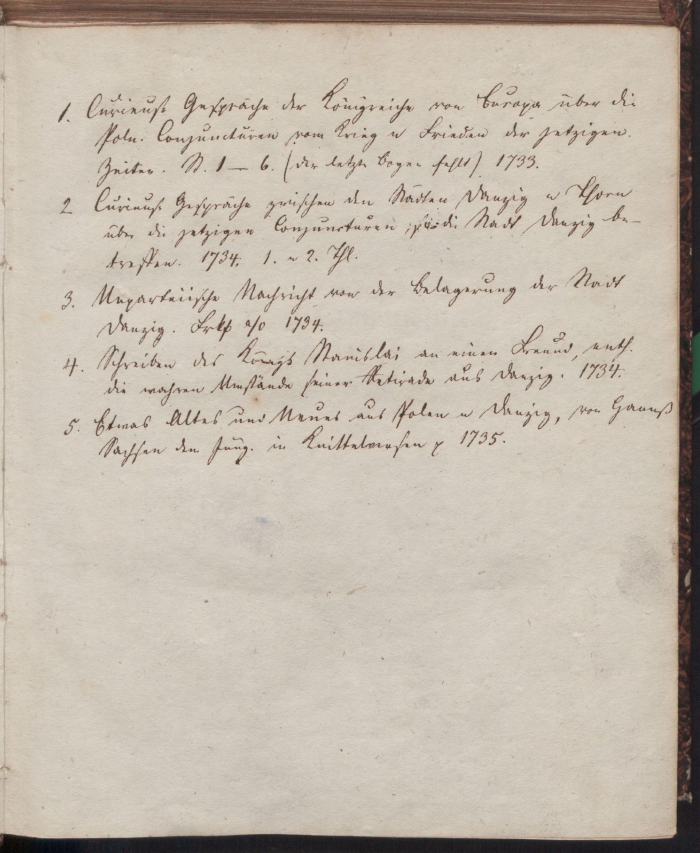 1. Curieuse Gespräche der Königreiche von Europa über die
Poln. Conjuncturen vom Krieg u Frieden der jetzigen
Zeiten. N. 1 — 6. (der letzte Bogen fehlt) 1733.
2 Curieuse Gespräche zwischen den Städten Danzig u Thorn
über die jetzigen Conjuncturen, die Stadt Danzig be-
treffen. 1734. 1. u 2. Thl.
3. Unparteiische Nachricht von der Belagerung der Stadt
Danzig. Frkf a/o 1734.
4. Schreiben des Königs Stanislai an einen Freund, enth.
die wahren Umstände seiner Retirade aus Danzig. 1734.
5. Etwas Altes und Neues aus Polen u Danzig, von Hannß
Sachsen dem Jüng. in Knittelversen 1735.